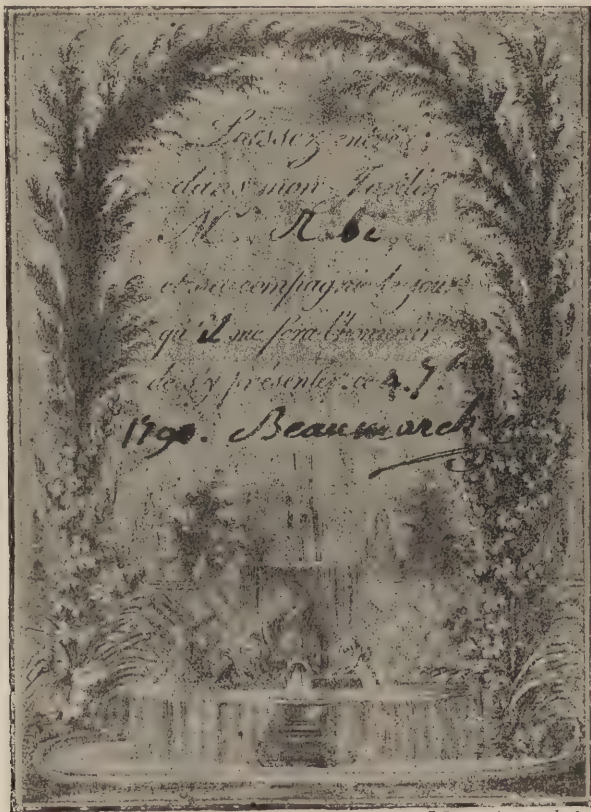 Laissez entrer
dans mon Jardin
M.
et sa compagnie le jour
qu'il me fera l'honneur
de s'y présenter. ce 4. 7.bre
179 . Beaumarchais